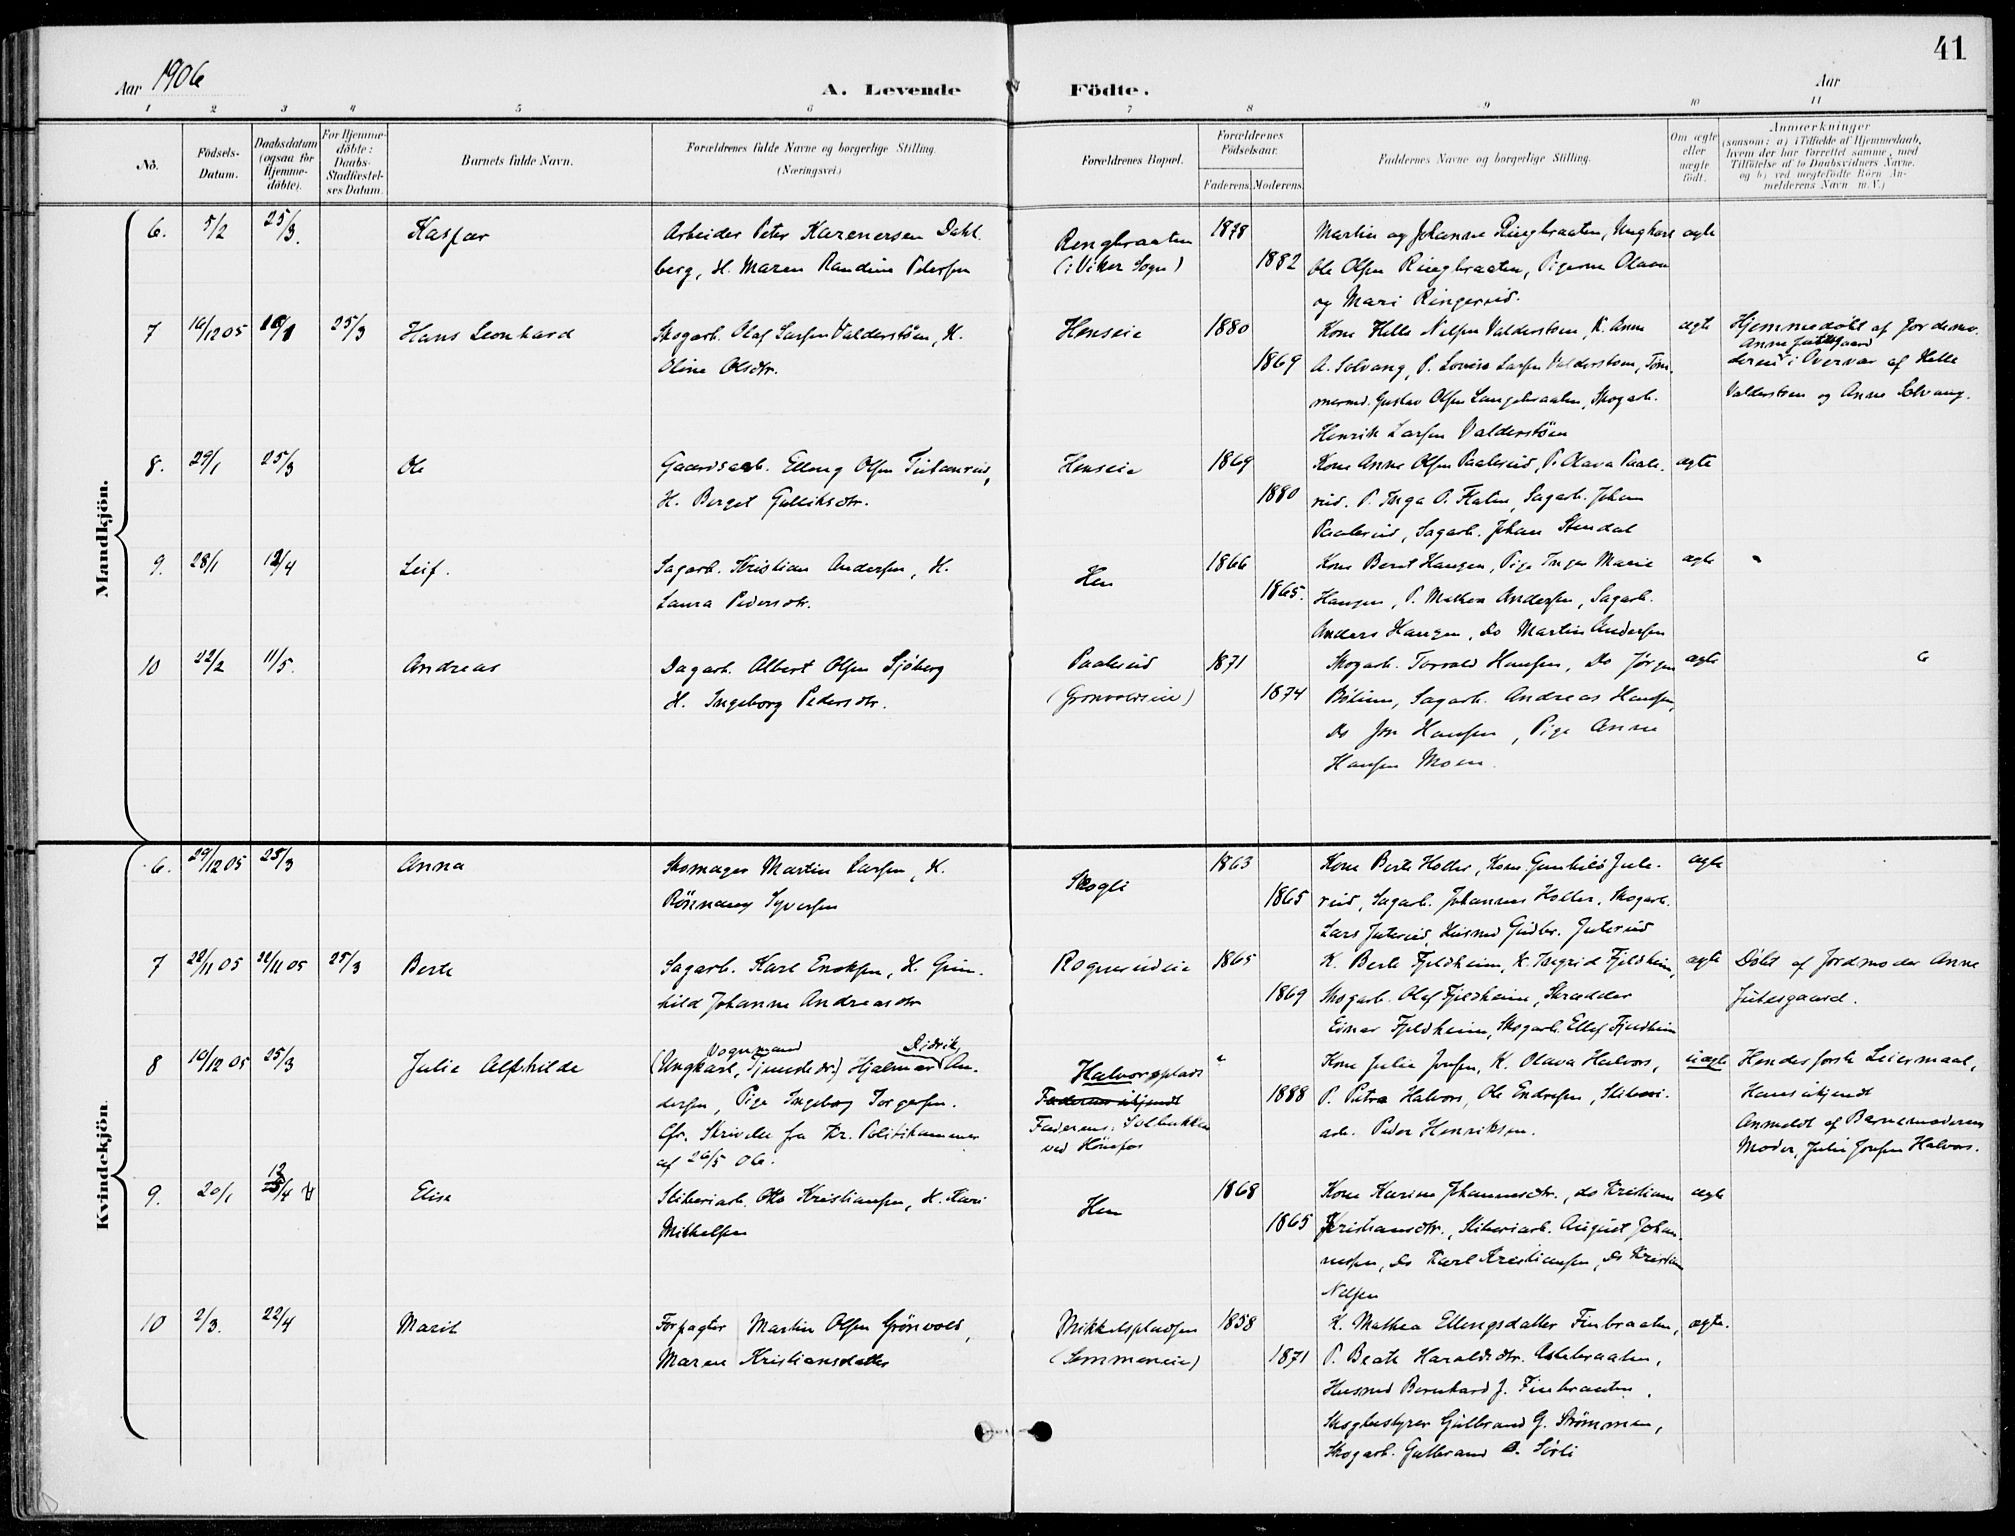 41
Aar 1906
A. Levende Födte.
Aar
1 2 3 4 5 6 7 8 9 10 11
No.
Födsels-Datum.
Daabsdatum (ogsaa for Hjemmedöbte).
For Hjemmedöbte: Daabs-Stadfæstelses Datum.
Barnets fulde Navn.
Forældrenes fulde Navne og borgerlige Stilling. (Næringsvei.)
Forældrenes Bopæl.
Forældrenes Födselsaar.
Faderens. Moderens.
Faddernes Navne og borgerlige Stilling.
Om ægte eller uægte födt.
Anmærkninger
(saasom: a) i Tilfælde af Hjemmedaab, hvem der har forrettet samme, med Tilföielse af to Daabsvidners Navne, og b) ved uægtefödte Börn Anmelderens Navn m. V.)
Mandkjön.
6. 5/2 25/3. Kaspar
Arbeider Peter Karenersen Dahl-
berg, H. Maren Randine Petersen
Ringbraaten
(i Viker Sogn)
1878
1882
Martin og Johanne Ringbraaten, Ungkarl
Ole Olsen Ringbraaten, Pigerne Olava
og Mari Ringerud.
ægte
7 16/12 05 25/3 Hans Leonhard
Skogarb. Olaf Larsen Valderstøen, H.
Oline Olsdtr.
Henseie
1880
1869
Kone Helle Nilsen Valderstøen, K. Anne
A. Solvang, P. Lovise Larsen Valderstøen, Tøm-
mermd. Gustav Olsen Langebraaten, Skogarb.
Henrik Larsen Valderstøen
ægte
Hjemmedøbt af Jordemo-
deren i Overvær af Helle
Valderstøen og Anne Solvang.
8. 29/1 25/3 Ole
Gaardsarb. Elling Olsen
H. Berget Gulliksdtr.
Henseie
1869
1880
Kone Anne Olsen Paalerud, P. Olava Paale-
rud. P. Inga O. Flaten, Sagarb. Johan
Paalerud, Sagarb. Johan Stendal
ægte
9. 28/1 12/4 Leif.
Sagarb. Kristian Andersen, H.
Laura Pedersdtr.
Hen
1866
1865.
Kone Berit Haugen, Pige Inger Marie
Haugen, P. Mathea Andersen, Sagarb.
Anders Haugen, Do Martin Andersen
ægte
10 22/2 11/5. Andreas
Dagarb. Albert Olsen Sjøberg
H. Ingeborg Pedersdtr.
Paalerud
(Grønvoldseie)
1871
1874
Skogarb. Torvald Hansen, Do Jørgen
Sagarb. Andreas Hansen,
Do Jon Hansen, Pige Anne
Hansen Moen.
ægte
Kvindekjön.
6. 29/12 05 25/3 Anna
Skomager Martin Larsen, H.
Rønnaug Syversen
Skogli
1863
1865
Kone Berte Holler, Kone Gunhild Jute-
rud, Sagarb. Johannes Holler, Skogarb.
Lars Juterud, Husmd Gudbr. Juterud
ægte
7 22/11 05 22/11 05 25/3 Berte
Sagarb. Karl Enoksen, H. Gun-
hild Johanne Andreasdtr
Rognerudeie
1865
1869
K. Berte Fjeldheim, K. Ingrid Fjeldheim,
Skogarb. Olaf Fjeldheim, Skrædder
Einar Fjeldheim, Skogarb. Ellef Fjeldheim
ægte
Døbt af Jordmoder Anne
Jutesgaard.
8 10/12 05 25/3 Julie Alfhilde
Vognmand Didrik
(Ungkarl, ) Hjalmar An-
dersen, Pige Ingeborg Torgersen.
Cfr. Skrivelse fra Kr. Politikammer
af 26/5 06.
Halvorsplads
Faderen ukjendt
Faderens: Solbakken
ved Hönefos
1888
Kone Julie Josefsen, K. Olava Halvors,
P. Petra Halvors, Ole Endresen, Sliberi-
arb. Peder Henriksen.
uægte
Hendes første Leiermaal,
Hans ukjendt
Anmeldt af Barnemoderens
Moder, Julie Josefsen Halvors.
9. 20/1 12/4 Elise
Sliberiarb. Otto Kristiansen, H. Kari
Mikkelsen
Hen
1868
1865
Kone Karine Johannesdtr., do Kristiane
Kristiansdtr., Sliberiarb. August Johan-
nessen, Do Karl Kristiansen, Do Kristian
Nilsen
ægte
10 2/3. 22/4 Marit
Forpagter Martin Olsen Grönvold,
Maren Kristiansdatter
Mikkelspladsen
(Semmeneie)
1858
1871
K. Mathea Ellingsdatter Finbraaten,
P. Beate Haraldsdtr. Askebraaten,
Husmd Bernhard J. Finbraaten,
Skogbestyrer Gulbrand G. Strömmen,
Skogarb. Gulbrand A. Sørli
ægte.